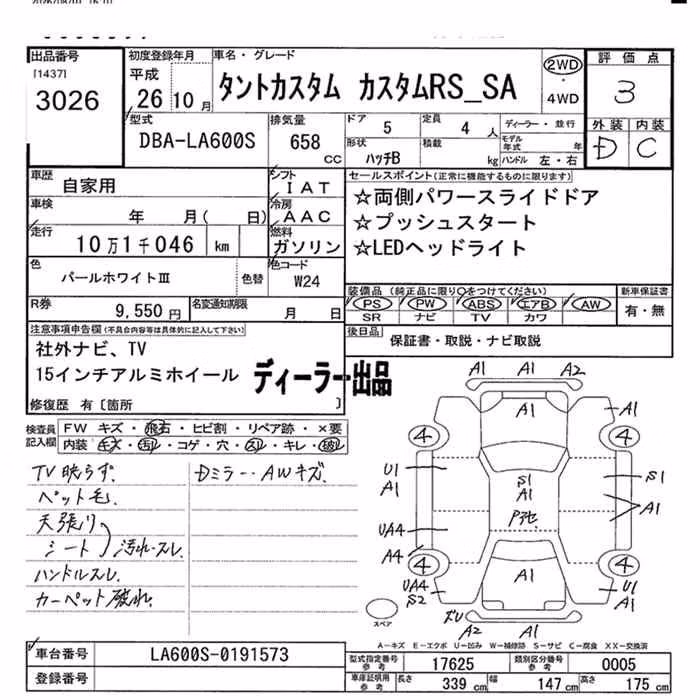 出品番号
[1437]
3026
初度登録年月
平成
26 10 月
車名・グレード
タントカスタム カスタムRS_SA
2WD
・
4WD
評価点
3
外装 内装
D C
型式
DBA-LA600S
排気量
658
cc
ドア 5
定員 4 人
形状
ハッチB
積載
kg
ディーラー・並行
モデル
年式 年
ハンドル 左・右
車歴
自家用
シフト
IAT
車検
年 月( 日)
冷房
AAC
走行
10万1千046 km
燃料
ガソリン
色
パールホワイトⅢ
色替
色コード
W24
R券
9,550 円
名変通知期限
月 日
セールスポイント(正常に機能するものに限ります)
☆両側パワースライドドア
☆プッシュスタート
☆LEDヘッドライト
装備品(純正品に限り○をつけてください)
PS PW ABS エアB AW
SR ナビ TV カワ
新車保証書
有・無
後日品
保証書・取説・ナビ取説
注意事項申告欄(不具合内容等は具体的に記入して下さい)
社外ナビ、TV
15インチアルミホイール
ディーラー出品
修復歴 有〔箇所 〕
検査員
記入欄
FW キズ・飛石・ヒビ割・リペア跡・×要
内装 キズ・汚レ・コゲ・穴・スレ・キレ・破レ
TV映らず.
ペット毛.
天張り
シート 汚れ・スレ.
ハンドルスレ.
カーペット破れ.
Dミラー・AWキズ.
A1 A1 A2
A1
A1
4 4
U1
A1
S1
A1
S1
A1
UA4
A4
4 4
UA4
S2
A1
U1
A1
ズレ A2 A1
スペア
A-キズ E-エクボ U-凹み W-補修跡 S-サビ C-腐食 XX-交換済
車台番号
LA600S-0191573
登録番号
型式指定番号
参考
17625
類別区分番号
参考
0005
車庫証明用
参考
長さ 339 cm
幅 147 cm
高さ 175 cm